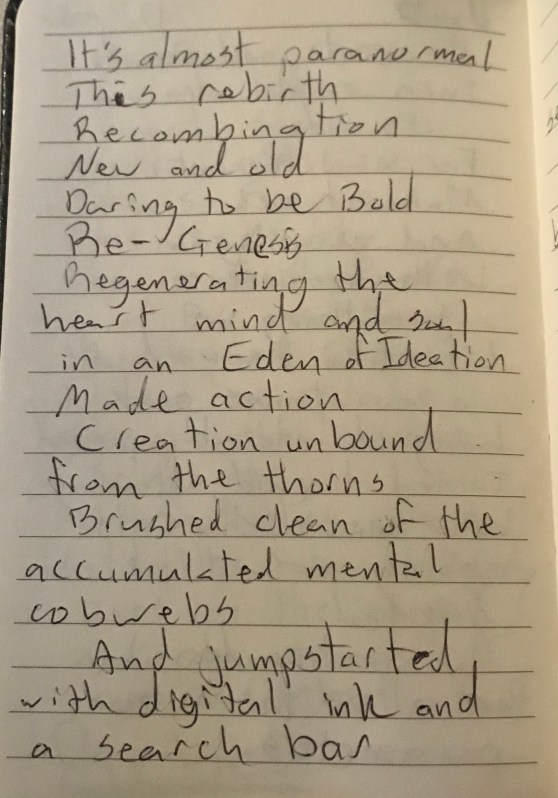 It's almost paranormal
This rebirth
Recombination
New and old
Daring to be Bold
Re-Genesis
Regenerating the
heart mind and soul
in an Eden of Ideation
Made action
Creation unbound
from the thorns
Brushed clean of the
accumulated mental
cobwebs
And jumpstarted
with digital ink and
a search bar